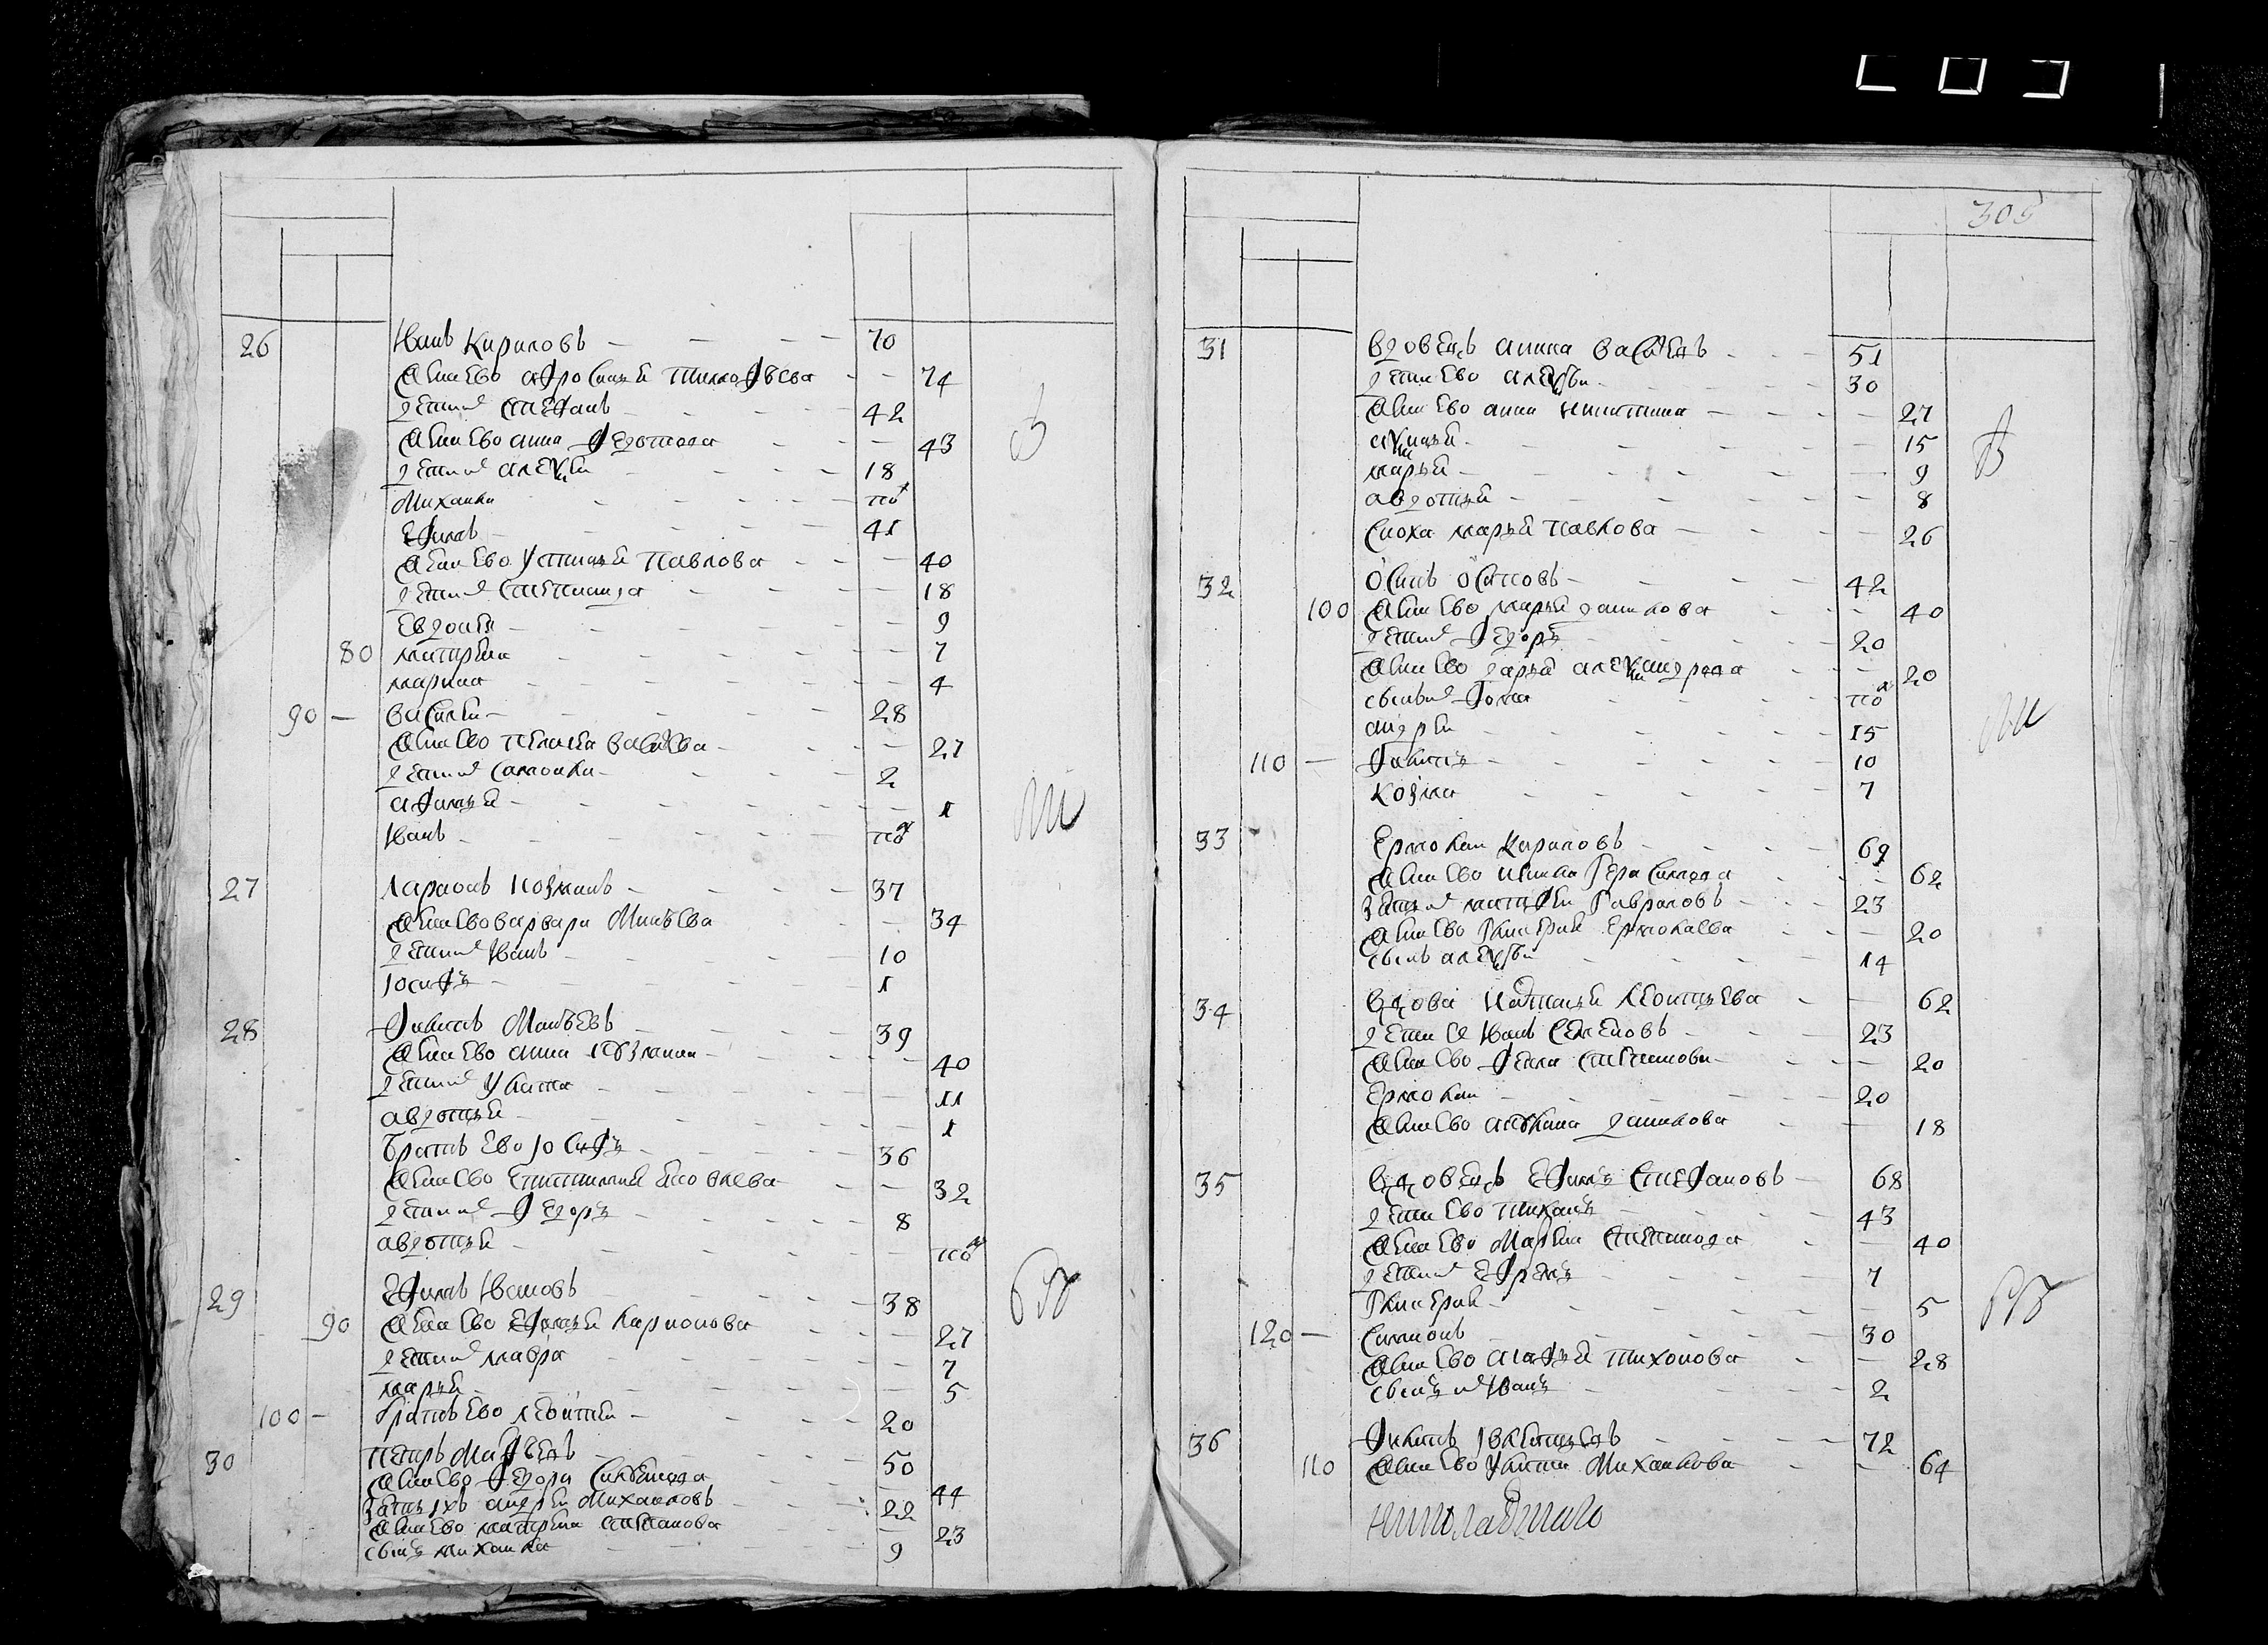 26 Иванъ Кириловъ 70
Жена ево афросинья тимофѣева 74
дети их стефанъ 42
Жена ево анна федотова 43
дети их алексей 18
Михаила пол
Ефимъ 41
Жена ево устинья павлова 40
дети их степанида 18
Евдокия 9
80 матрена 7
марина 4
90 василей 28
Жена ево пелагея васильева 27
дети их самойла 2
афимья 1
Иванъ пол
27 Ларионъ козминъ 37
Жена ево варвара Минѣева 34
дети их Иванъ 10
Iосифъ 1
28 Филипъ Матвѣевъ 39
Жена ево анна 40
дети их Улита 11
авдотья 1
братъ ево Iосифъ 36
Жена ево епитимия яковлева 32
дети их федоръ 8
авдотья пол
29 Ефимъ Ивановъ 38
90 Жена ево Ефимья ларионова 27
дети их мавра 7
марья 5
100 братъ ево леонтей 20
30 петръ Матвѣевъ 50
Жена ево федора 44
зять ихъ андрей Михаиловъ 22
Жена ево матрена степанова 23
сынъ михаила 9
305
31 вдовецъ аника васильевъ 51
дети ево алексѣй 30
Жена ево анна никитина 27
аксинья 15
марья 9
авдотья 8
сноха марья павлова 26
32 Осипъ Осиповъ 42
100 Жена ево марья данилова 40
дети их федоръ 20
Жена ево дарья александрова 20
сыны их фома пол
андрей 15
110 филипъ 10
козма 7
33 Ермолай Кириловъ 69
Жена ево герасимова 62
зять их матфей гавриловъ 23
Жена ево гликерия Ермолаева 20
сынъ алексѣй 14
34 вдова наталья леонтьева 62
дети ее Иванъ семеновъ 23
Жена ево фекла степанова 20
Ермолай 20
Жена ево акулина данилова 18
35 вдовецъ Ефимъ стефановъ 68
дети ево михаилъ 43
Жена ево Марфа степанова 40
дети их Ефремъ 7
гликерия 5
120 симионъ 30
Жена ево агафья тихонова 28
сынъ их Иванъ 2
36 филипъ 72
110 Жена ево улита Михаилова 64